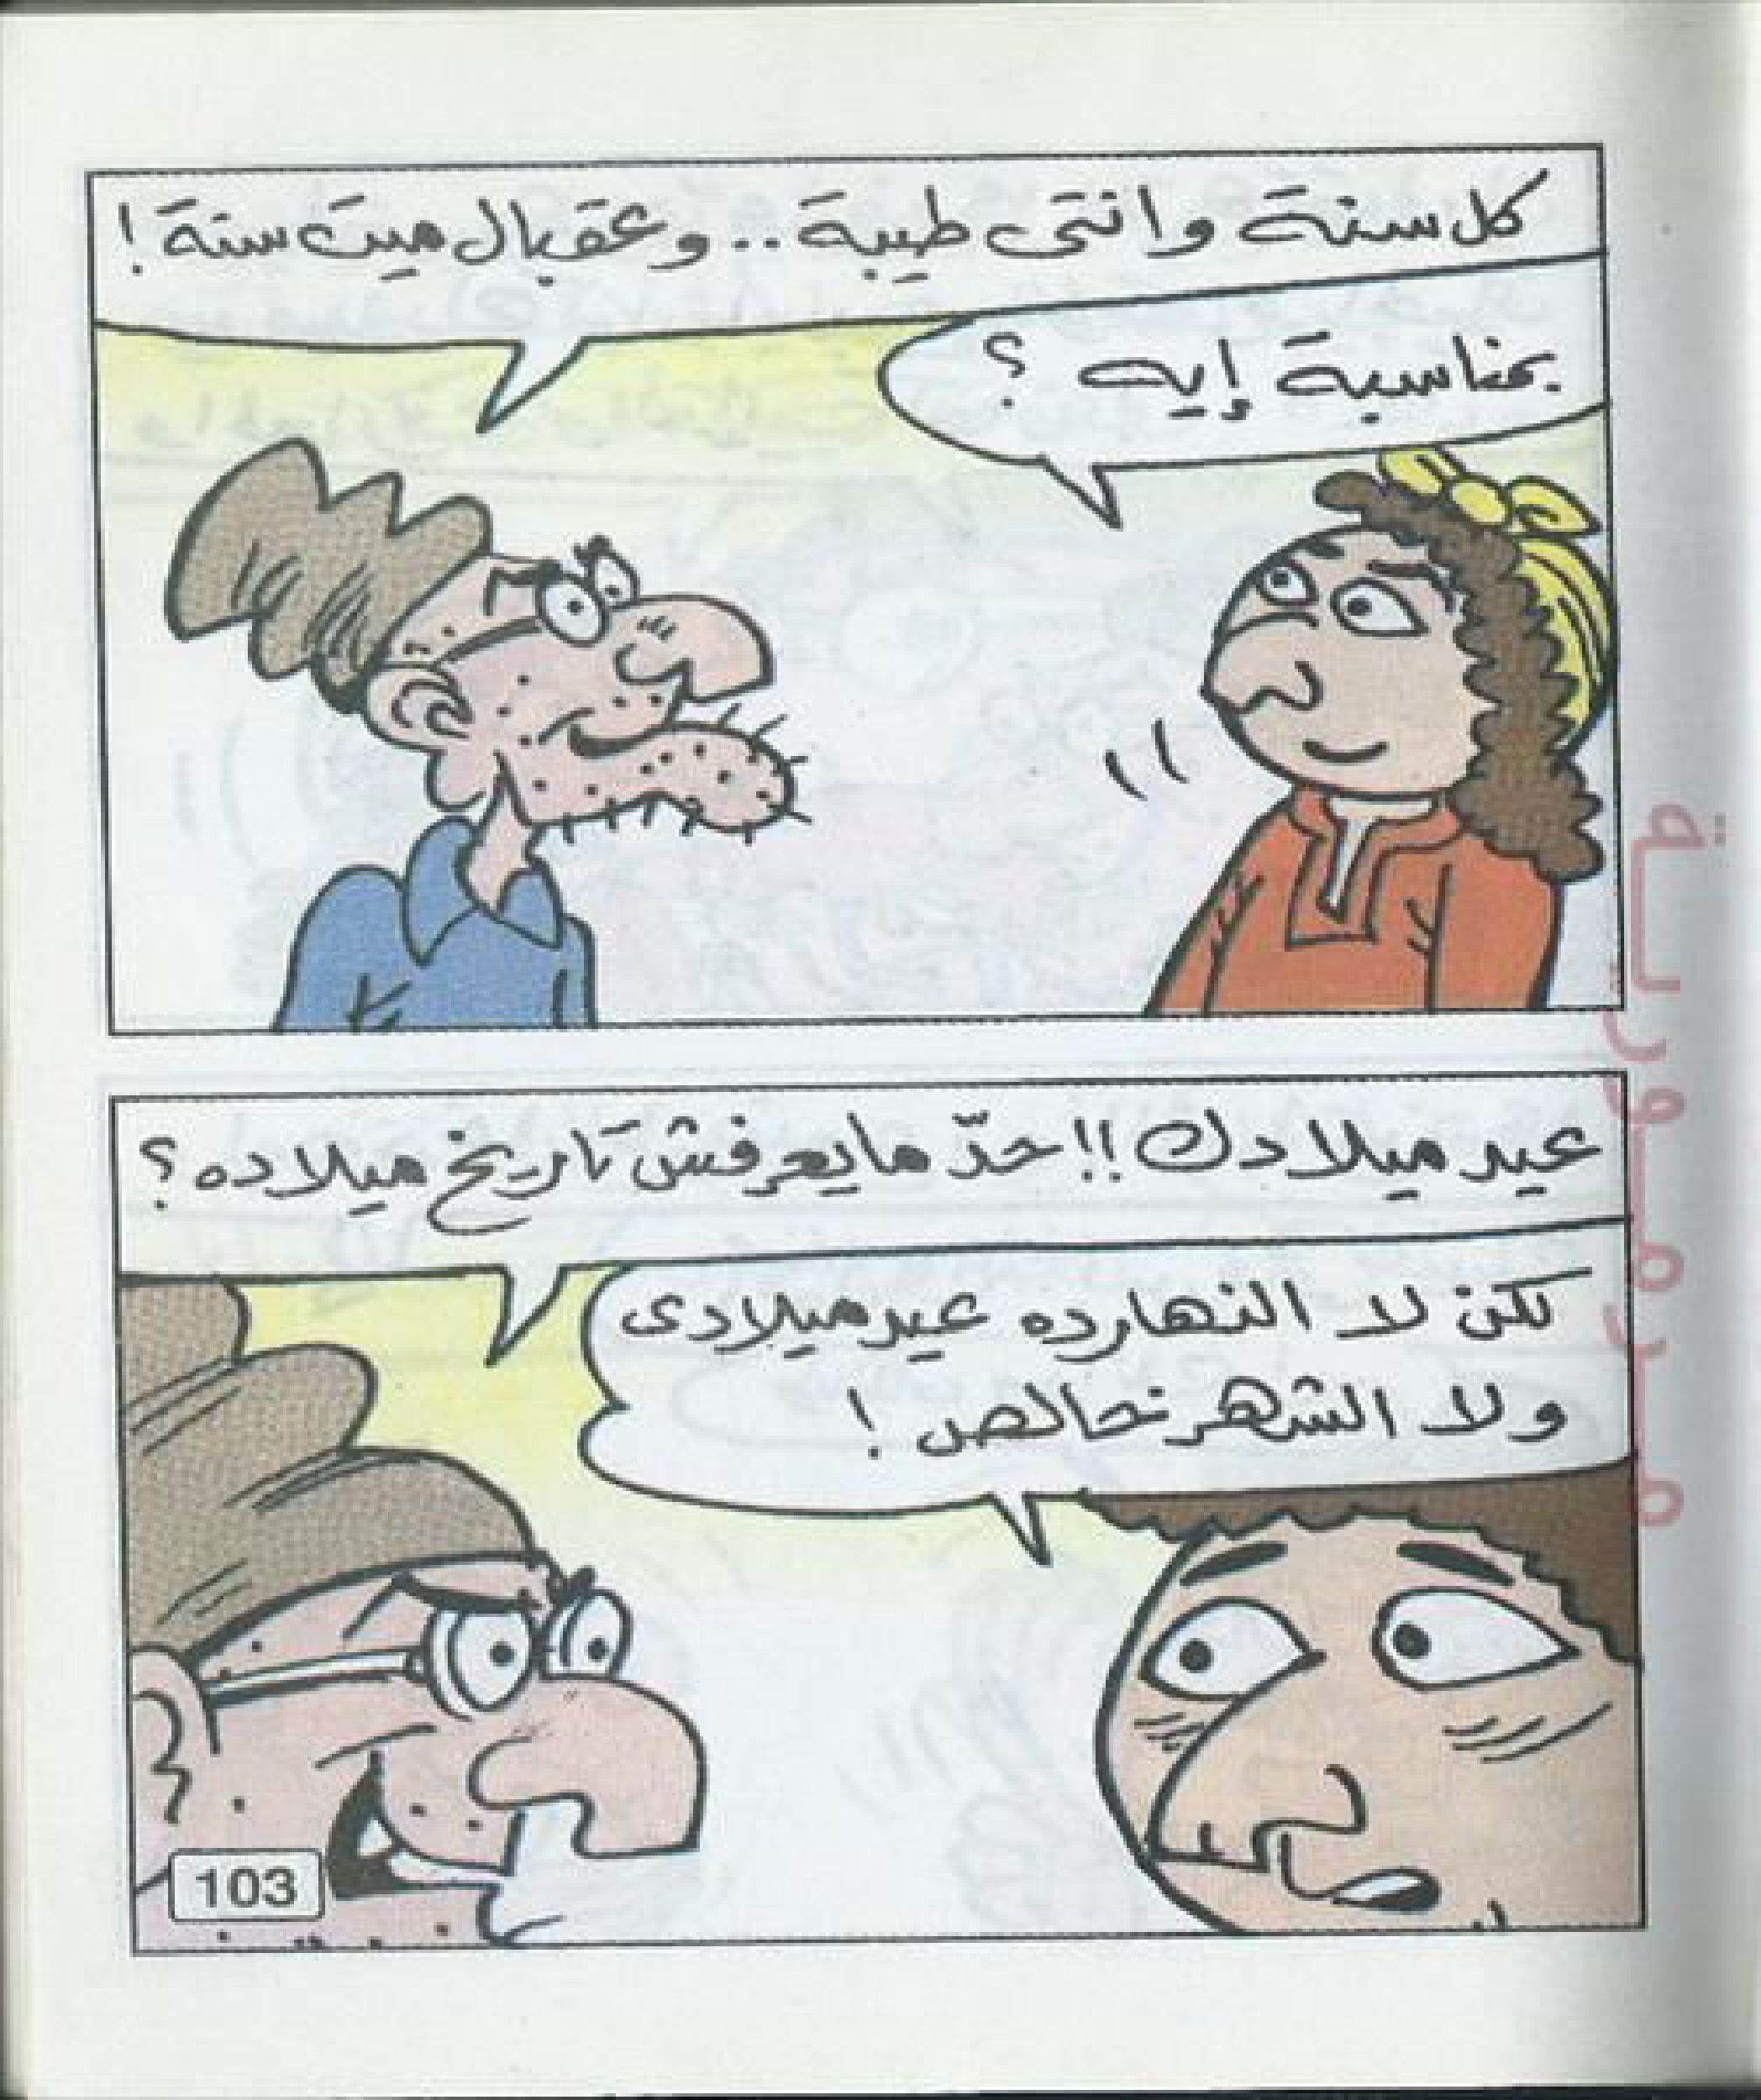 كل سنة وانتى طيبة.. وعقبال ميت سنة!
بمناسبة إيه ؟
عيد ميلادك!! حدّ مايعرفش تاريخ ميلاده؟
لكن لا النهارده عيد ميلادى
ولا الشهر خالص!
103